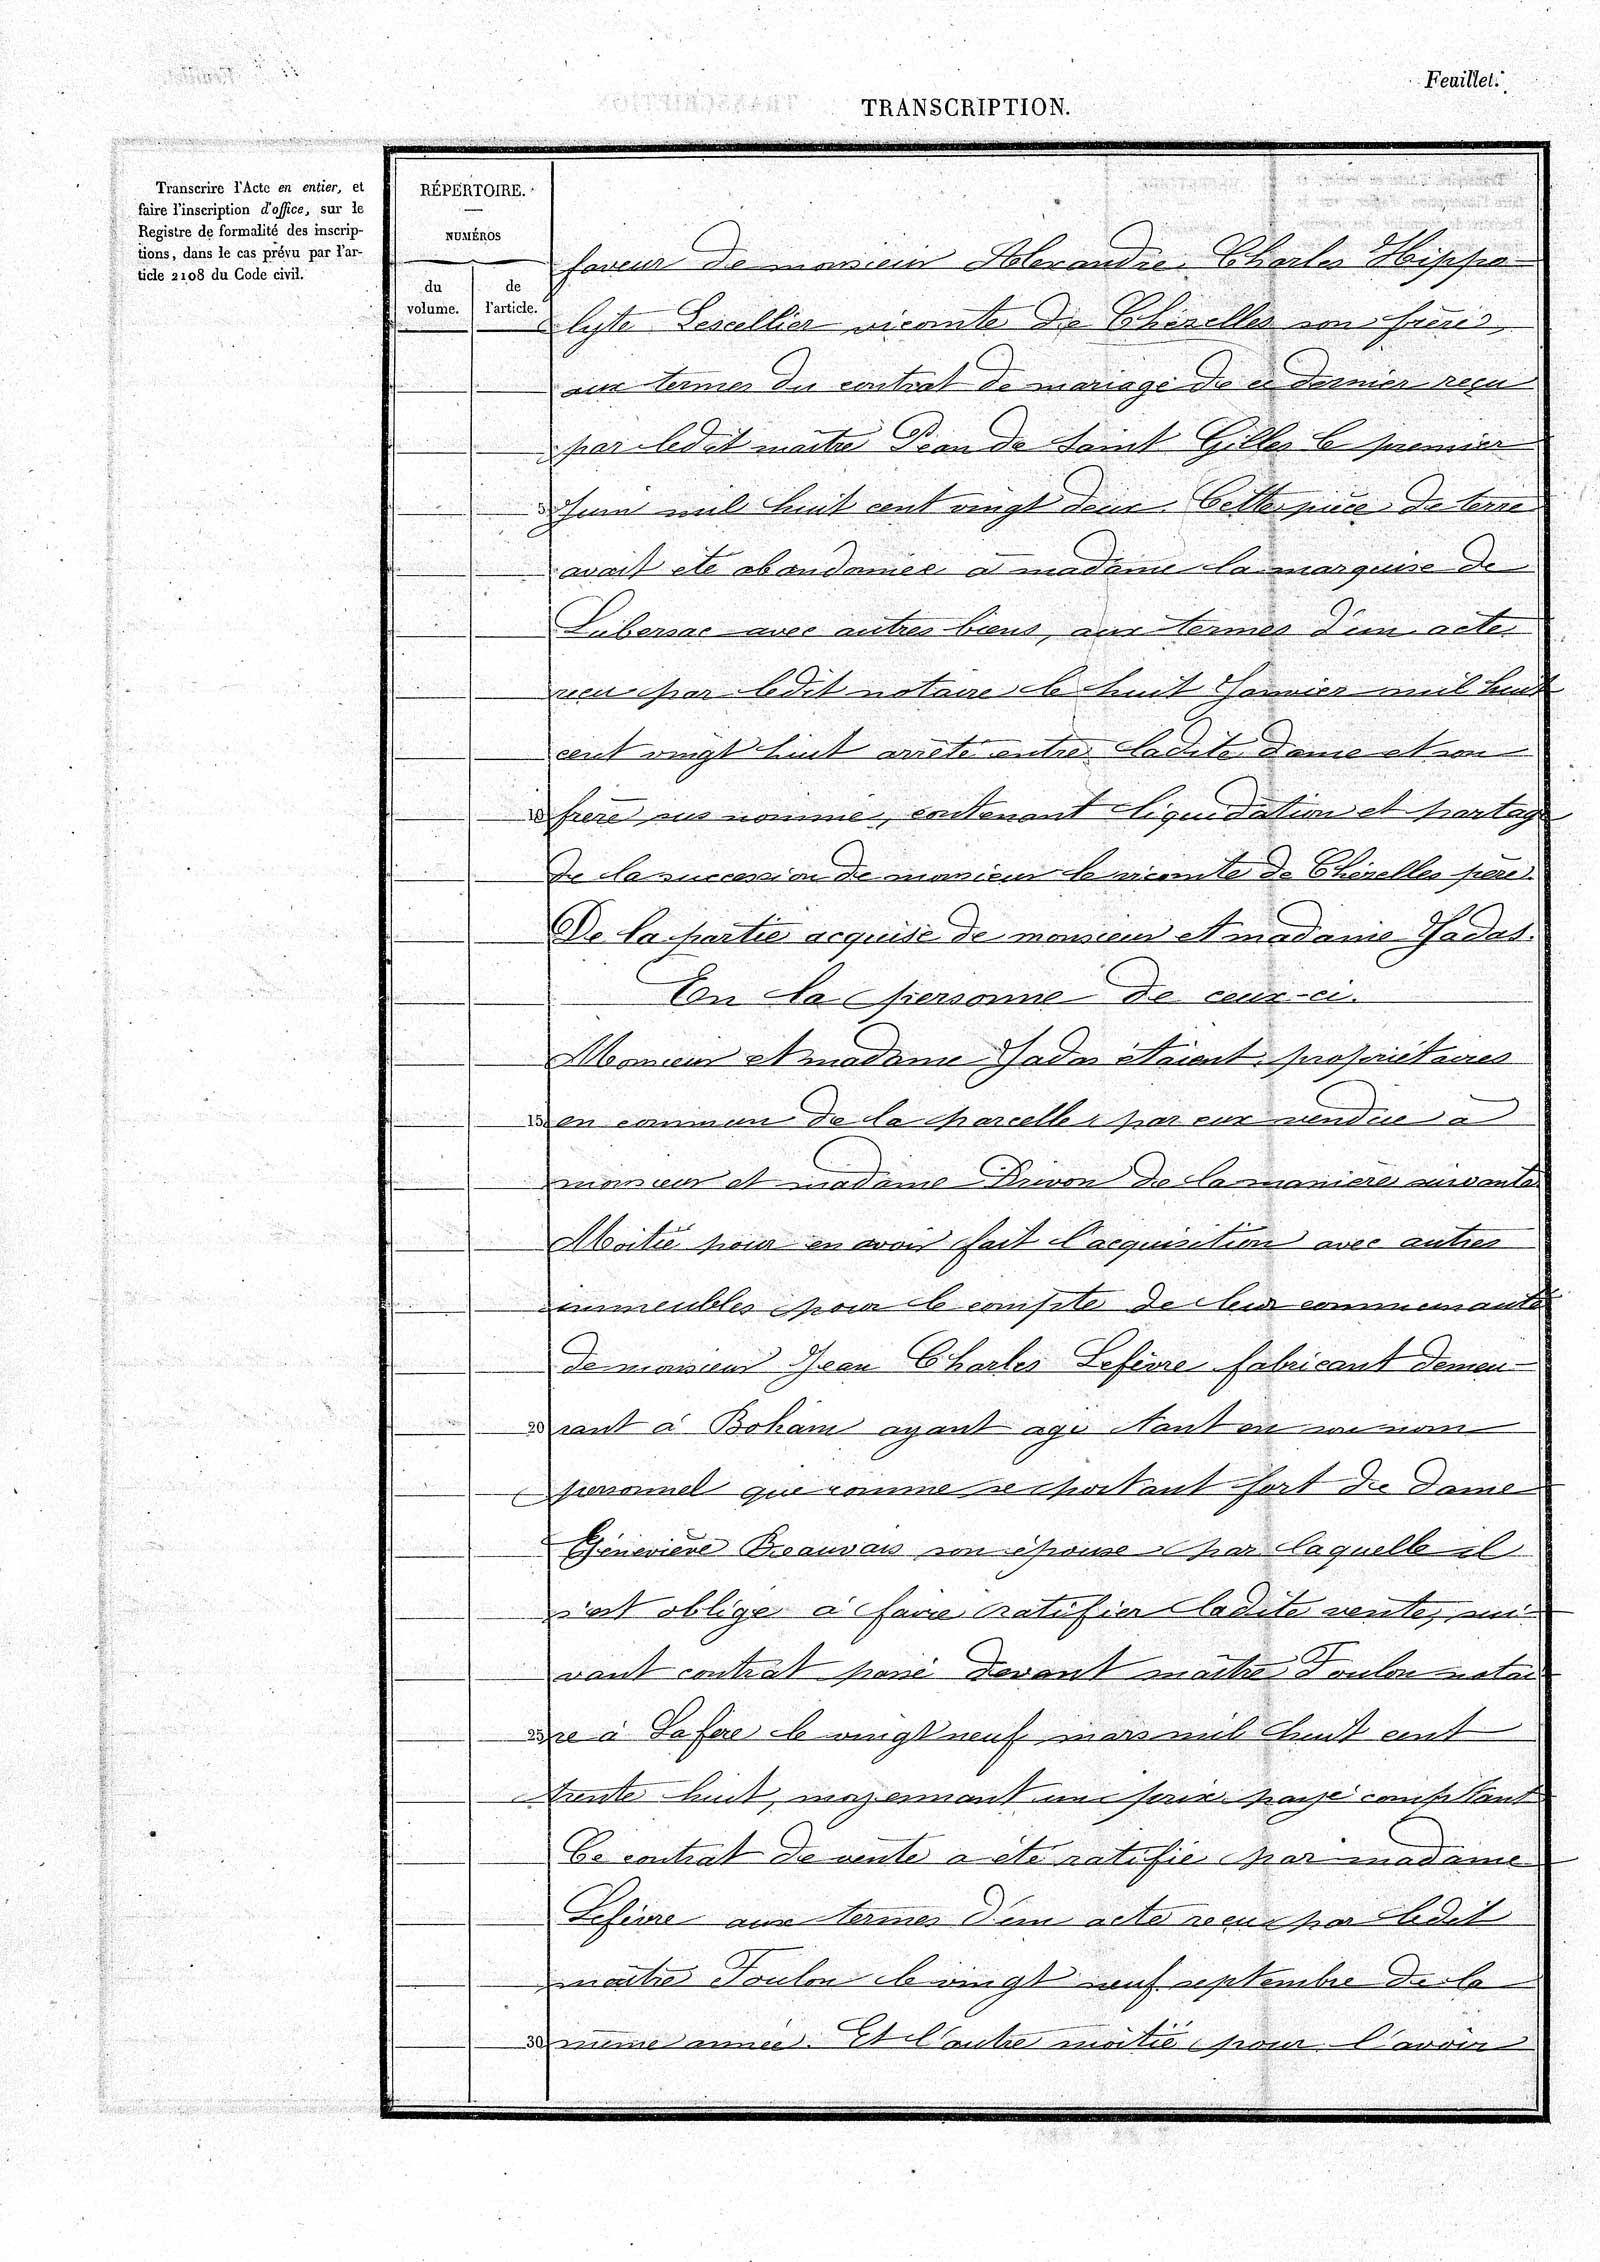 Feuillet.
TRANSCRIPTION.
Transcrire l'Acte en entier, et
faire l'inscription d'office, sur le
Registre de formalité des inscrip-
tions, dans le cas prévu par l'ar-
ticle 2108 du Code civil.
RÉPERTOIRE.
NUMÉROS
du volume.
de l'article.
faveur de monsieur Alexandre Charles Hippo-
lyte Lescellier vicomte de Chézelles son frère,
aux termes du contrat de mariage de ce dernier reçu
par ledit maître Péan de Saint Gilles le premier
5 Juin mil huit cent vingt deux. Cette pièce de terre
avait été abandonnée à madame la marquise de
Lubersac avec autres biens, aux termes d'un acte
reçu par ledit notaire le huit Janvier mil huit
cent vingt huit arrêté entre ladite dame et son
10 frère sus nommé, contenant liquidation et partage
de la succession de monsieur le vicomte de Chézelles père.
De la partie acquise de monsieur et madame Jadas.
En la personne de ceux-ci.
Monsieur et madame Jadas étaient propriétaires
15 en commun de la parcelle par eux vendue à
monsieur et madame Drivon de la manière suivante
Moitié pour en avoir fait l'acquisition avec autres
immeubles pour le compte de leur communauté
de monsieur Jean Charles Lefèvre fabricant demeu-
20 rant à Bohain ayant agi tant en son nom
personnel que comme se portant fort de dame
Géneviève Beauvais son épouse par laquelle il
s'est obligé à faire ratifier ladite vente, sui-
vant contrat passé devant maître Toulon notai
25 re à Lafère le vingt neuf mars mil huit cent
trente huit, moyennant un prix payé comptant
Ce contrat de vente a été ratifié par madame
Lefèvre aux termes d'un acte reçu par ledit
maître Toulon le vingt neuf septembre de la
30 même année. Et l'autre moitié pour l'avoir